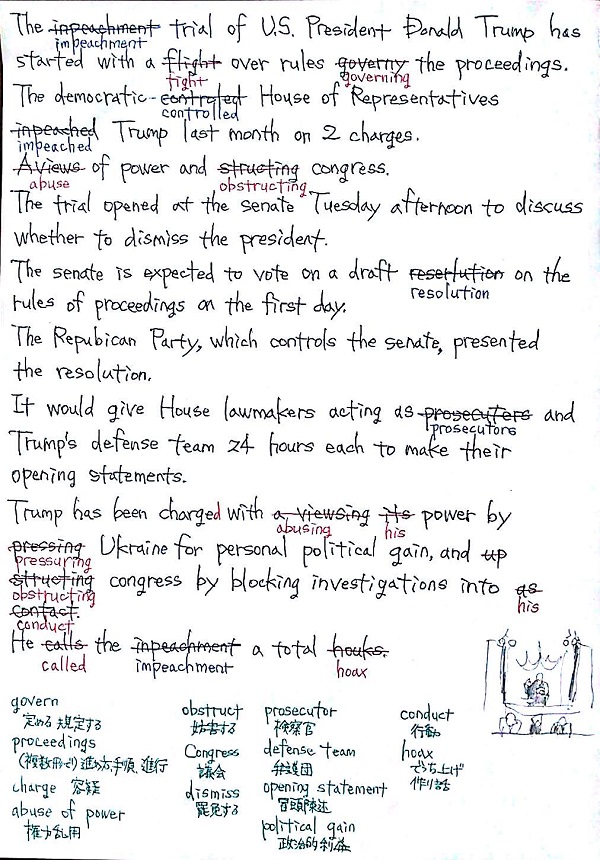 The inpeachment trial of U.S. President Donald Trump has
impeachment
started with a flight over rules governy the proceedings.
fight governing
The democratic-controled House of Representatives
controlled
inpeached Trump last month on 2 charges.
impeached
A views of power and structing congress.
abuse obstructing
The trial opened at the senate Tuesday afternoon to discuss
whether to dismiss the president.
The senate is expected to vote on a draft reserlution on the
resolution
rules of proceedings on the first day.
The Repubican Party, which controls the senate, presented
the resolution.
It would give House lawmakers acting as prosecuters and
prosecutors
Trump's defense team 24 hours each to make their
opening statements.
Trump has been charged with a viewsing its power by
abusing his
pressing Ukraine for personal political gain, and up
pressuring
structing congress by blocking investigations into as
obstructing his
contact.
conduct
He calls the inpeachment a total houks.
called impeachment hoax
govern
定める 規定する
proceedings
(複数形で) 進め方、手順、進行
charge 容疑
abuse of power
権力乱用
obstruct
妨害する
Congress
議会
dismiss
罷免する
prosecutor
検察官
defense team
弁護団
opening statement
冒頭陳述
political gain
政治的利益
conduct
行動
hoax
でっち上げ
作り話